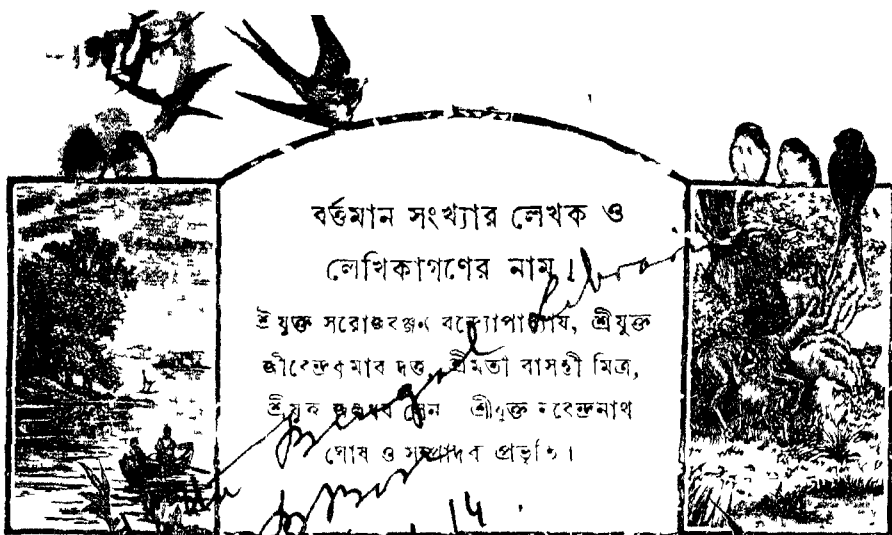 বর্ত্তমান সংখ্যার লেখক ও
লেখিকাগণের নাম।
শ্রীযুক্ত সরোজরঞ্জন বন্দ্যোপাধ্যায়, শ্রীযুক্ত
দত্ত, শ্রীমতী বাসন্তী মিত্র,
শ্রীযুক্ত জলধর সেন শ্রীযুক্ত নরেন্দ্রনাথ
ঘোষ ও সম্পাদক প্রভৃতি।
Bengal Library
14.